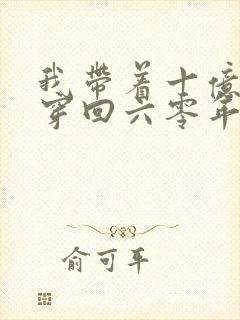 我带着十亿
穿回六零年
俞可平